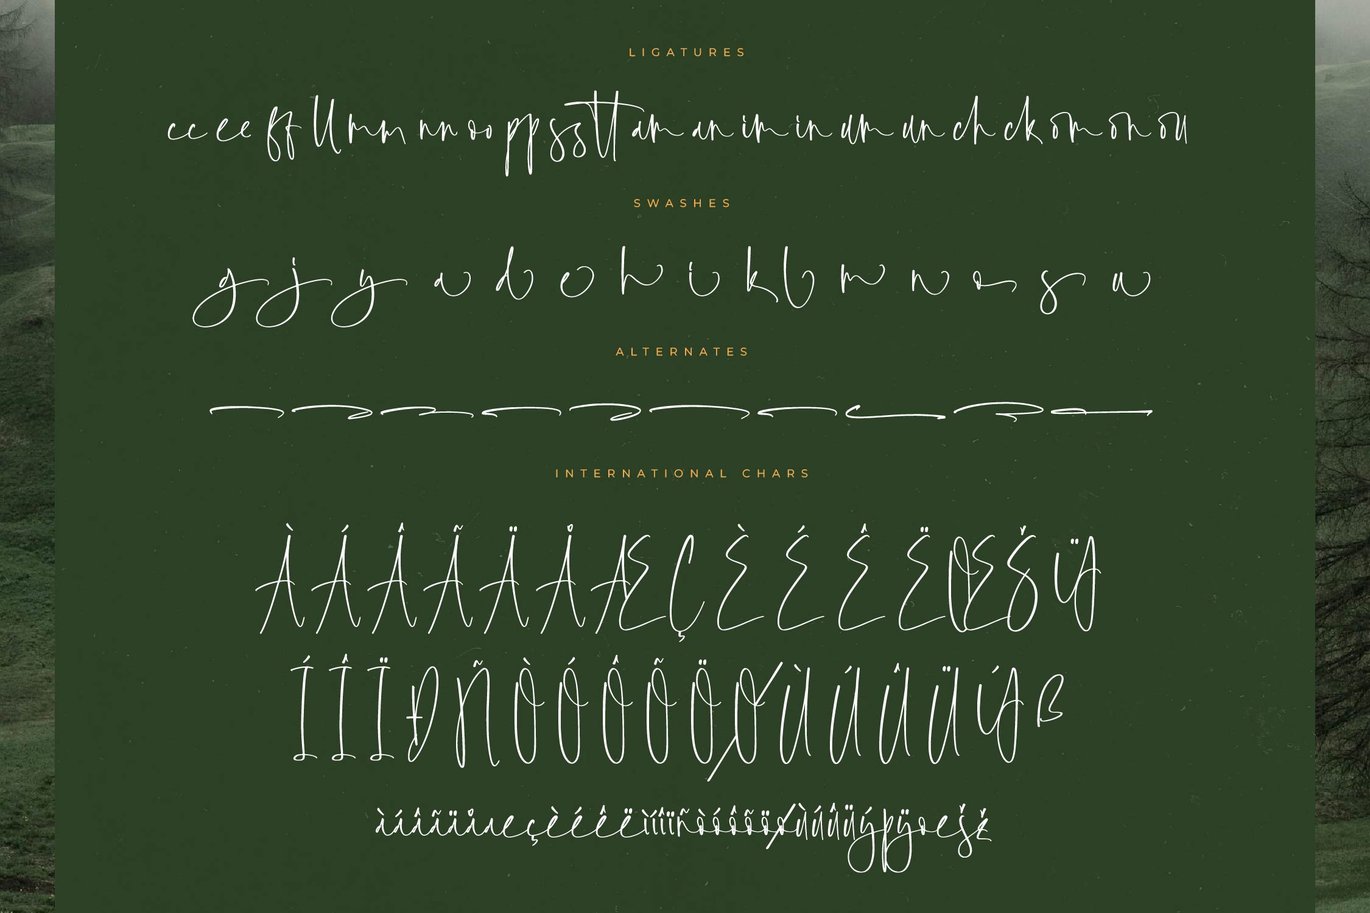 LIGATURES
cc ee ff ll mm nn oo pp ss tt am an im in um un ch ck om on ou
SWASHES
g j y a d e h i k l m n o s u
ALTERNATES
INTERNATIONAL CHARS
À Á Â Ã Ä Å Æ Ç È É Ê Ë Œ Š Ÿ
Í Î Ï Ð Ñ Ò Ó Ô Õ Ö Ø Ù Ú Û Ü Ý ß
àáâãäåæçèéêëìíîïñòóôõöøùúûüýþÿœšž